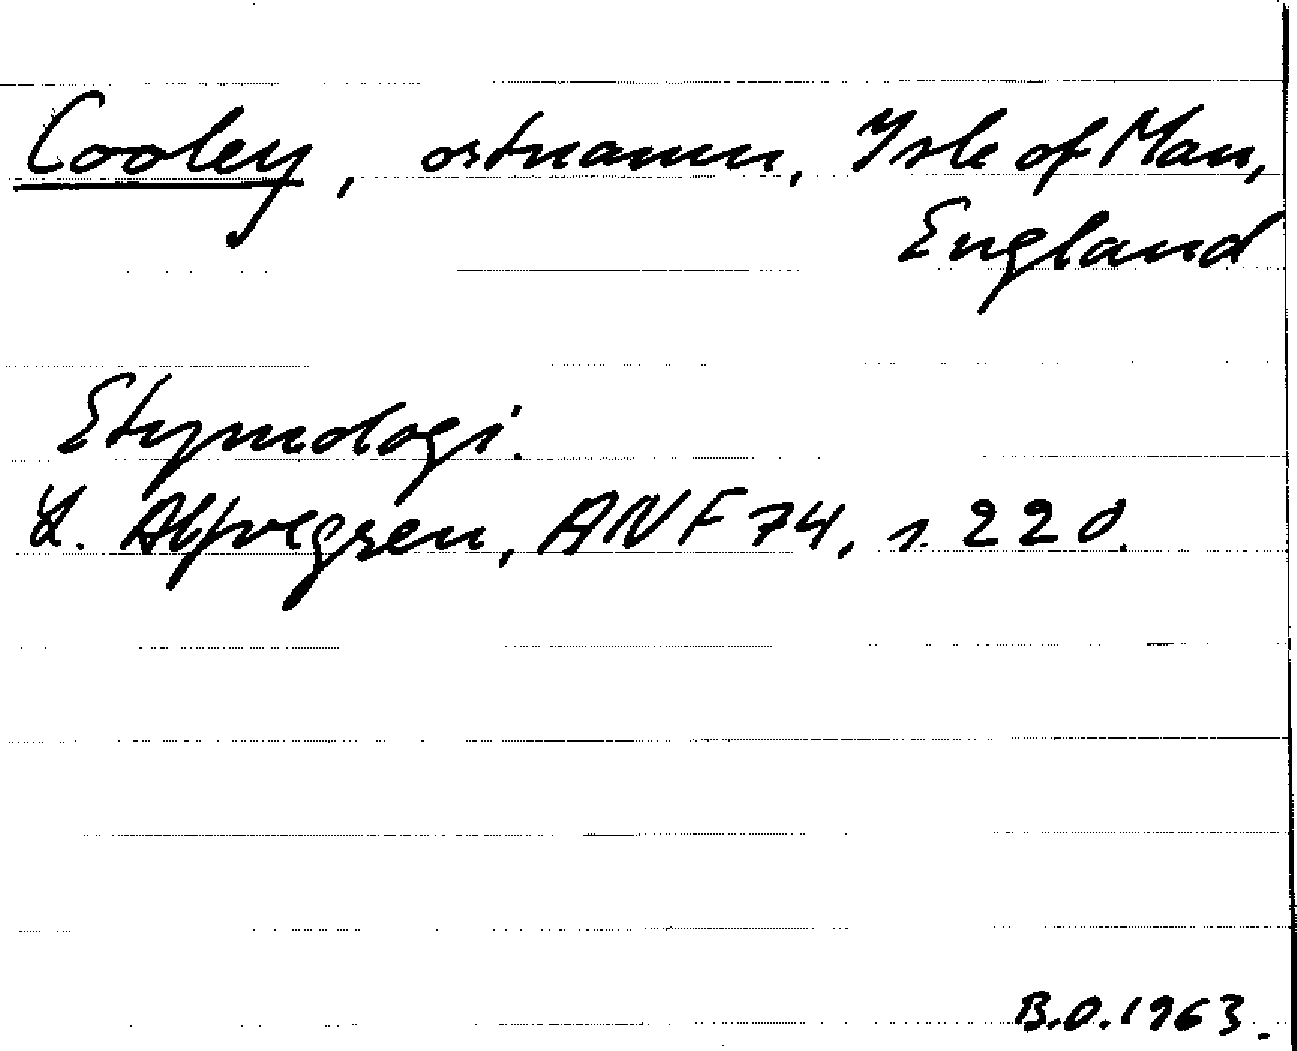 Cooley, ortnamn, Isle of Man,
England
Etymologi.
L. Alfvegren, ANF 74, s. 220.
B.O. 1963.